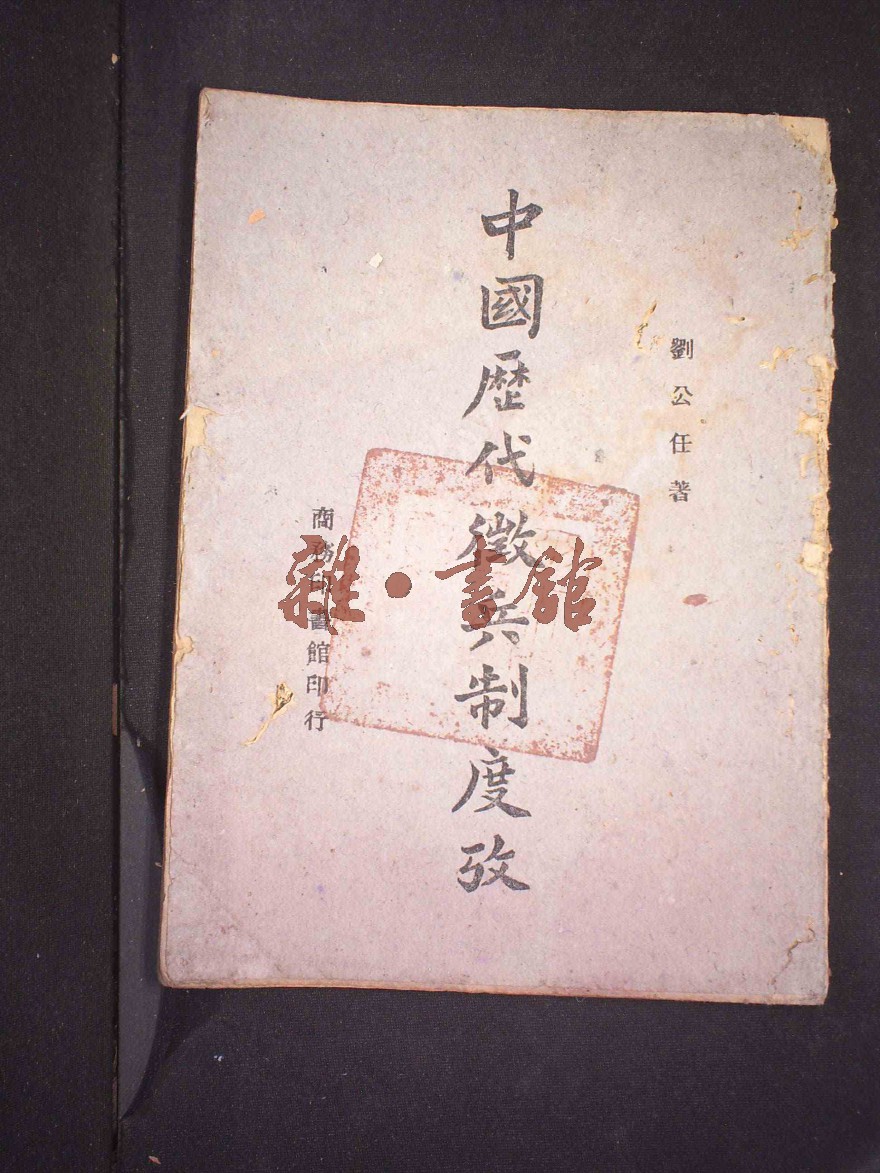 劉公任著
中國歷代徵兵制度攷
商務印書館印行
雜·書館